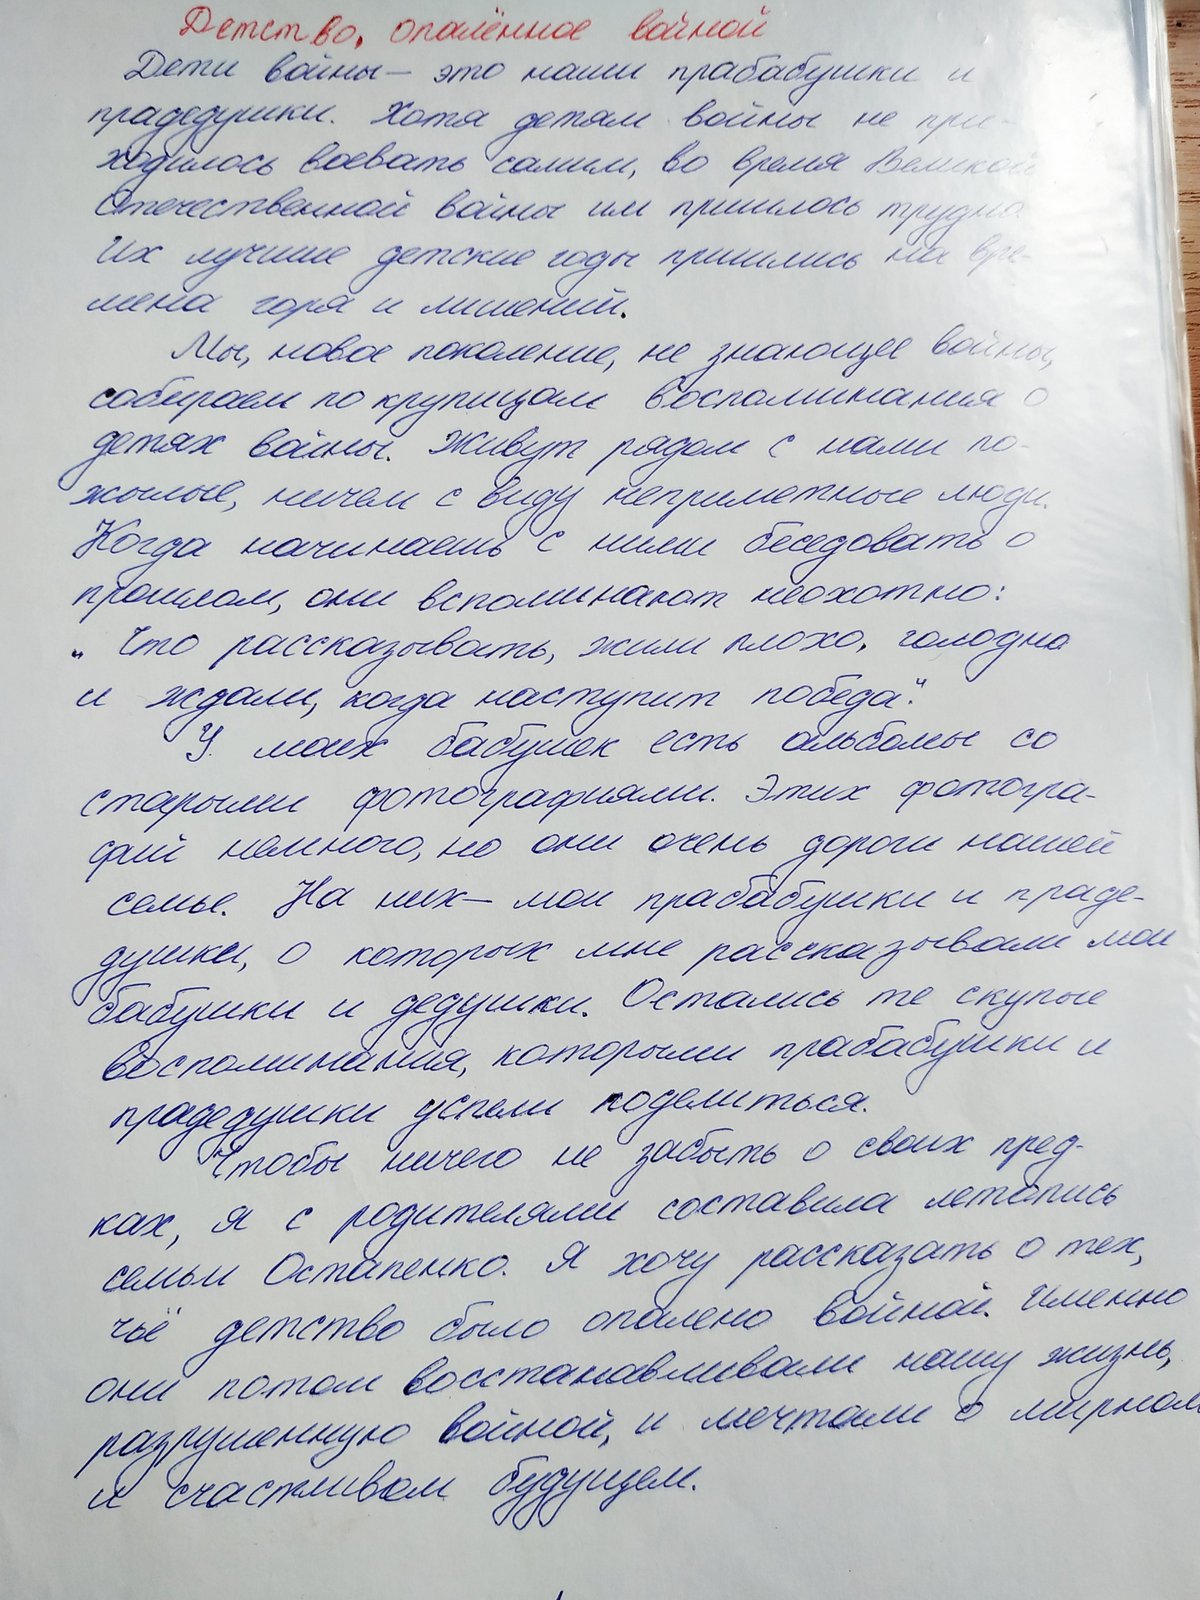 Детство, опалённое войной
Дети войны — это наши прабабушки и
прадедушки. Хотя детям войны не при-
ходилось воевать самим, во время Великой
Отечественной войны им пришлось трудно.
Их лучшие детские годы пришлись на вре-
мена горя и лишений.
Мы, новое поколение, не знающее войны,
собираем по крупицам воспоминания о
детях войны. Живут рядом с нами по-
жилые, ничем с виду неприметные люди.
Когда начинаешь с ними беседовать о
прошлом, они вспоминают неохотно:
„Что рассказывать, жили плохо, голодно
и ждали, когда наступит победа“.
У моих бабушек есть альбомы со
старыми фотографиями. Этих фотогра-
фий немного, но они очень дороги нашей
семье. На них — мои прабабушки и праде-
душки, о которых мне рассказывали мои
бабушки и дедушки. Остались те скупые
воспоминания, которыми прабабушки и
прадедушки успели поделиться.
Чтобы ничего не забыть о своих пред-
ках, я с родителями составила летопись
семьи Остапенко. Я хочу рассказать о тех,
чьё детство было опалено войной. Именно
они потом восстанавливали нашу жизнь,
разрушенную войной, и мечтали о мирном
и счастливом будущем.